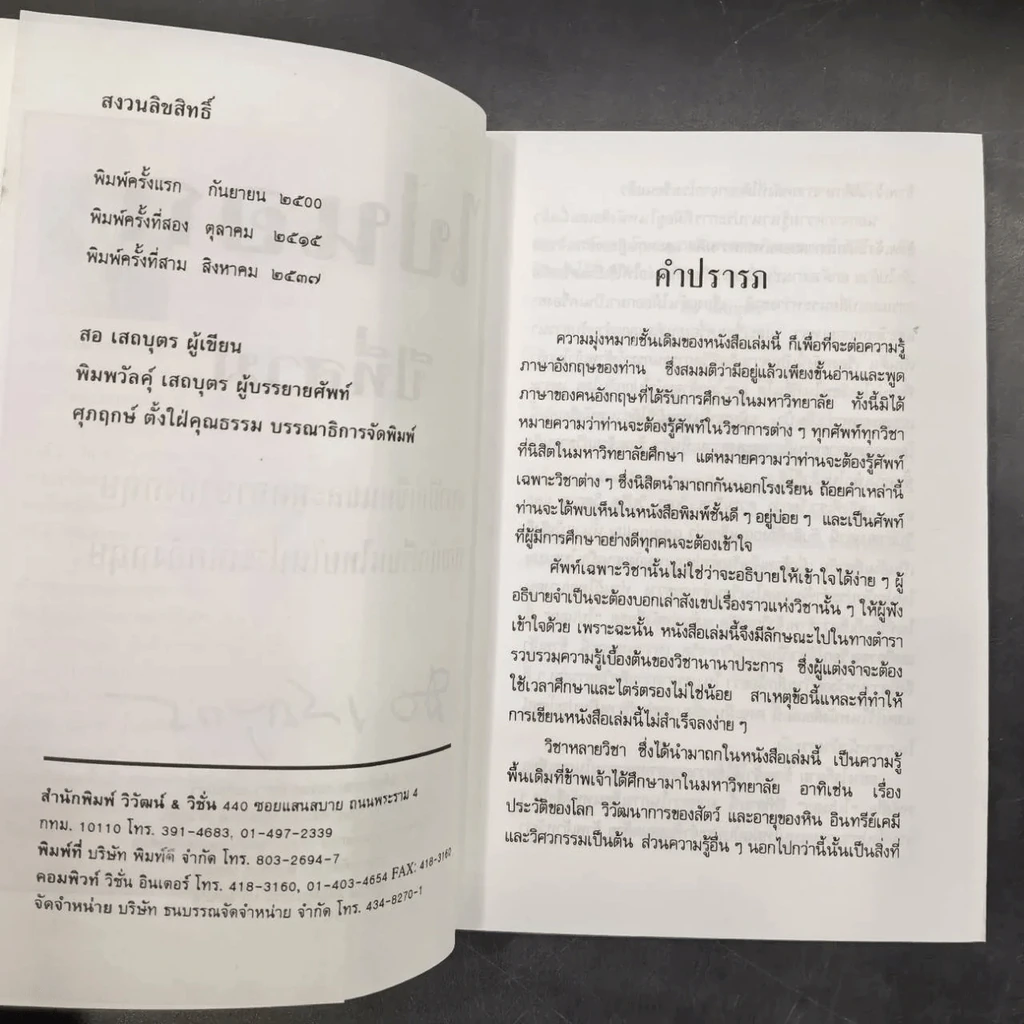 สงวนลิขสิทธิ์
พิมพ์ครั้งแรก กันยายน ๒๕๐๐
พิมพ์ครั้งที่สอง ตุลาคม ๒๕๑๕
พิมพ์ครั้งที่สาม สิงหาคม ๒๕๓๗
สอ เสถบุตร ผู้เขียน
พิมพวัลคุ์ เสถบุตร ผู้บรรยายศัพท์
ศุภฤกษ์ ตั้งใฝ่คุณธรรม บรรณาธิการจัดพิมพ์
สำนักพิมพ์ วิวัฒน์ & วิชั่น 440 ซอยแสนสบาย ถนนพระราม 4
กทม. 10110 โทร. 391-4683, 01-497-2339
พิมพ์ที่ บริษัท พิมพ์ดี จำกัด โทร. 803-2694-7
คอมพิวท์ วิชั่น อินเตอร์ โทร. 418-3160, 01-403-4654 FAX: 418-3160
จัดจำหน่าย บริษัท ธนบรรณจัดจำหน่าย จำกัด โทร. 434-8270-1
คำปรารภ
ความมุ่งหมายชั้นเดิมของหนังสือเล่มนี้ ก็เพื่อที่จะต่อความรู้
ภาษาอังกฤษของท่าน ซึ่งสมมติว่ามีอยู่แล้วเพียงขั้นอ่านและพูด
ภาษาของคนอังกฤษที่ได้รับการศึกษาในมหาวิทยาลัย ทั้งนี้มิได้
หมายความว่าท่านจะต้องรู้ศัพท์ในวิชาการต่าง ๆ ทุกศัพท์ทุกวิชา
ที่นิสิตในมหาวิทยาลัยศึกษา แต่หมายความว่าท่านจะต้องรู้ศัพท์
เฉพาะวิชาต่าง ๆ ซึ่งนิสิตนำมาถกกันนอกโรงเรียน ถ้อยคำเหล่านี้
ท่านจะได้พบเห็นในหนังสือพิมพ์ชั้นดี ๆ อยู่บ่อย ๆ และเป็นศัพท์
ที่ผู้มีการศึกษาอย่างดีทุกคนจะต้องเข้าใจ
ศัพท์เฉพาะวิชานั้นไม่ใช่ว่าจะอธิบายให้เข้าใจได้ง่าย ๆ ผู้
อธิบายจำเป็นจะต้องบอกเล่าสังเขปเรื่องราวแห่งวิชานั้น ๆ ให้ผู้ฟัง
เข้าใจด้วย เพราะฉะนั้น หนังสือเล่มนี้จึงมีลักษณะไปในทางตำรา
รวบรวมความรู้เบื้องต้นของวิชานานาประการ ซึ่งผู้แต่งจำจะต้อง
ใช้เวลาศึกษาและไตร่ตรองไม่ใช่น้อย สาเหตุข้อนี้แหละที่ทำให้
การเขียนหนังสือเล่มนี้ไม่สำเร็จลงง่าย ๆ
วิชาหลายวิชา ซึ่งได้นำมาถกในหนังสือเล่มนี้ เป็นความรู้
พื้นเดิมที่ข้าพเจ้าได้ศึกษามาในมหาวิทยาลัย อาทิเช่น เรื่อง
ประวัติของโลก วิวัฒนาการของสัตว์ และอายุของหิน อินทรีย์เคมี
และวิศวกรรมเป็นต้น ส่วนความรู้อื่น ๆ นอกไปกว่านี้นั้นเป็นสิ่งที่